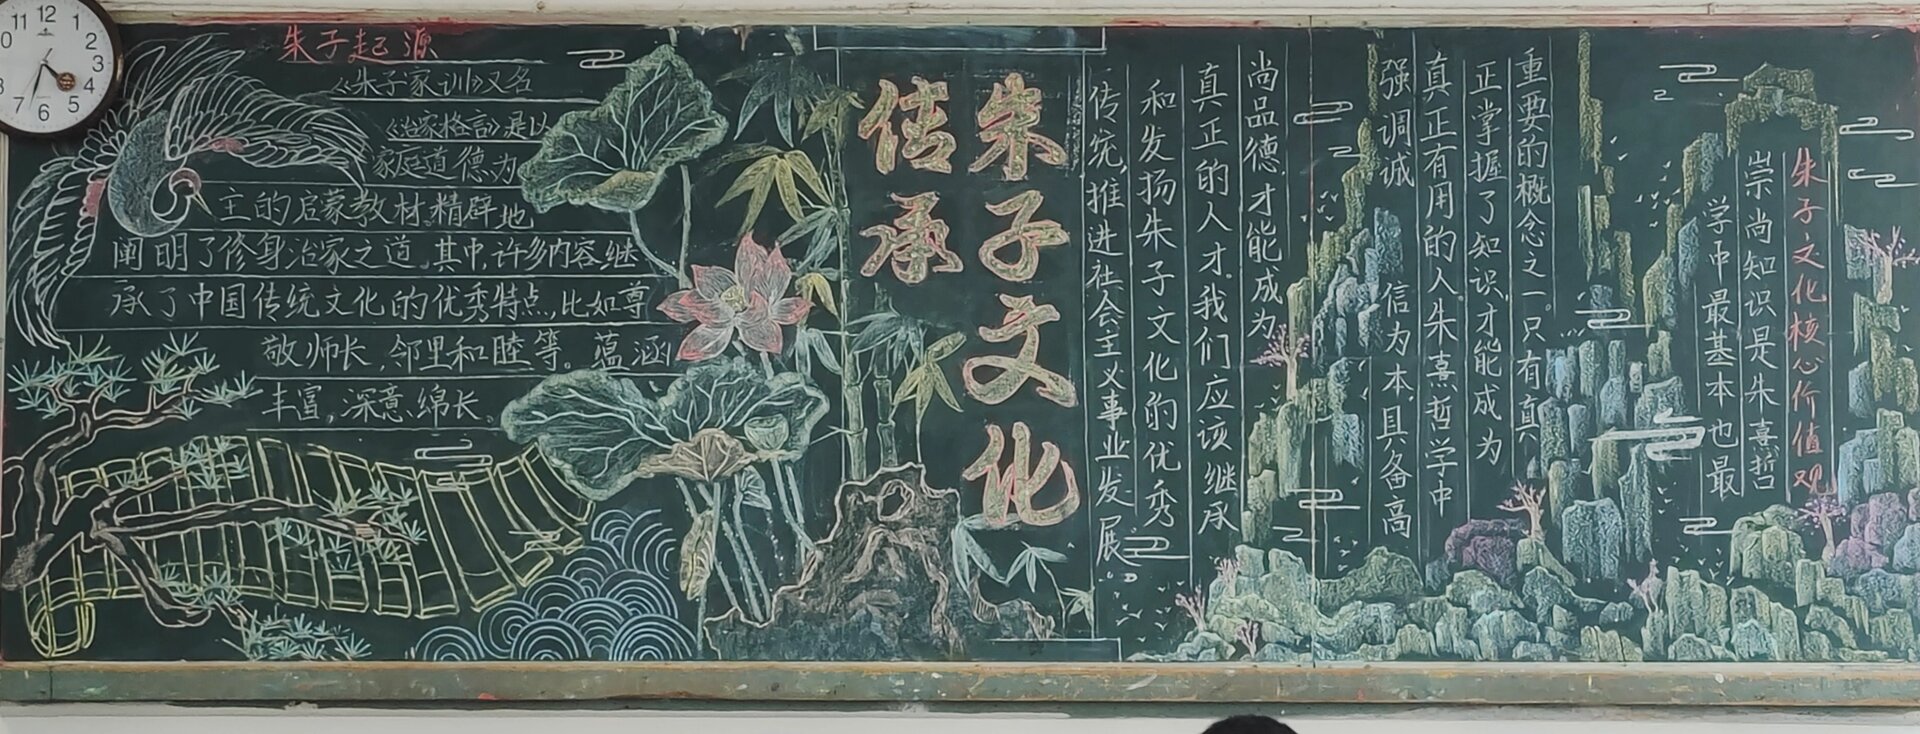 11 12 1 2 3 4 5 6 7
朱子起源
《朱子家训》又名
《治家格言》是以
家庭道德,为
主的启蒙教材,精辟地
阐明了修身治家之道。其中,许多内容继
承了中国传统文化的优秀特点,比如尊
敬师长,邻里和睦等。蕴涵
丰富,深意绵长。
朱子文化
传承
朱子文化核心价值观
崇尚知识是朱熹哲
学中最基本也最
重要的概念之一。只有真
正掌握了知识,才能成为
真正有用的人。朱熹哲学中
强调诚信为本,具备高
尚品德,才能成为
真正的人才。我们应该继承
和发扬朱子文化的优秀
传统,推进社会主义事业发展。